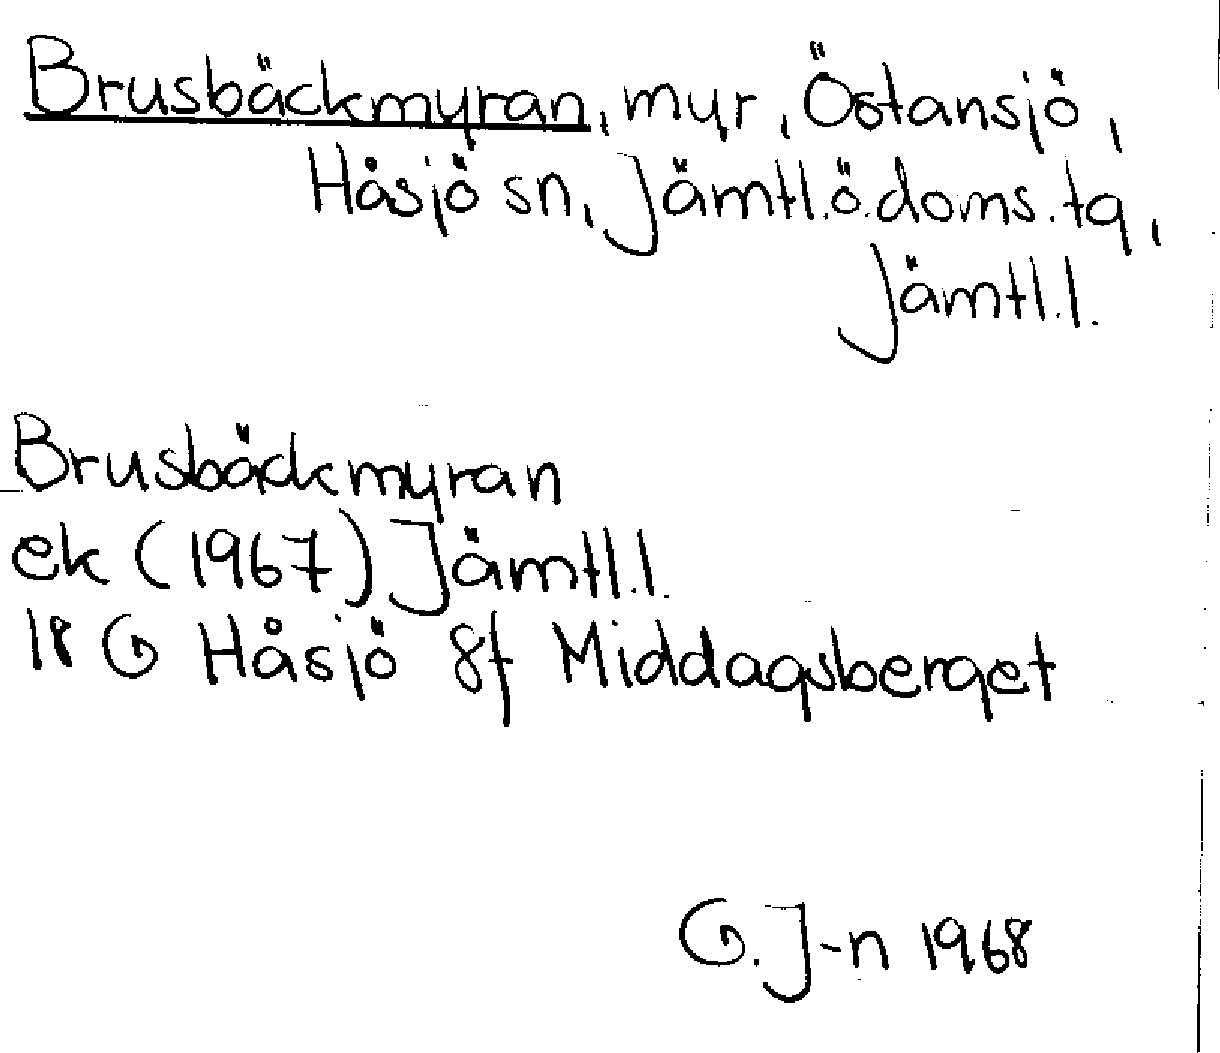 Brusbäckmyran, myr, Östansjö,
Håsjö sn, Jämtl.ö.doms.tg,
Jämtl.l.
Brusbäckmyran
ek (1967) Jämtl.l.
18 G Håsjö 8f Middagsberget
G. J-n 1968